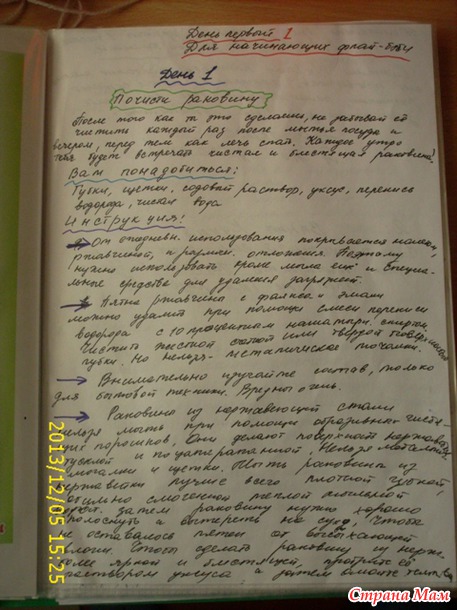 День первый 1
Для начинающих флай-бэби
День 1
Почисти раковину
После того как т это сделаешь, не забывай её
чистить каждый раз после мытья посуды и
вечером, перед тем как лечь спать. Каждое утро
тебя будет встречать чистая и блестящая раковина!
Вам понадобиться:
Губки, щетки, содовый раствор, уксус, перекись
водорода, чистая вода
Инструкция!
От ежедневн. использования покрывается налетом,
ржавчиной, и различн. отложения. Поэтому
нужно использовать кроме мыла ещё и специа-
льные средства для удаления загрязнен.
Пятна ржавчины с фаянса и эмали
можно удалить при помощи смеси перекиси
водорода с 10 процентным нашатырн. спиртом.
Чистить жесткой щеткой или твердой поверхностью
губки. Но нельзя - металической мочалки.
Внимательно изучайте состав, только
для бытовой техники. Вредны очень.
Раковина из нержавеющей стали
нельзя мыть при помощи абразивных чистя-
щих порошков. Они делают поверхность нержавейки
тусклой и поцарапанной. Нельзя металлич.
мочалки и щетки. Мыть раковины из
нержавейки лучше всего плотной губкой,
обильно смоченной теплой мыльной
затем раковину нужно хорошо
сполоснуть и вытереть на сухо, чтобы
не оставалось пятен от высыхающей
влаги. Чтобы сделать раковину из нерж.
более яркой и блестящей, протрите её
раствором уксуса и затем
2013/12/05 15:25
Страна Мам